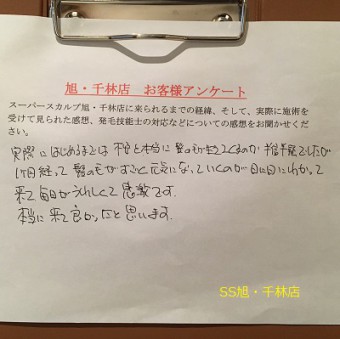 旭・千林店 お客様アンケート
スーパースカルプ旭・千林店に来られるまでの経緯、そして、実際に施術を
受けて見られた感想、発毛技能士の対応などについての感想をお聞かせくだ
さい。
実際にはじめるまでは 本当に 髪の毛が生えてくるのか 半信半疑でしたが
1ヶ月経って 髪の毛がすごく元気になっていくのが 日に日にわかって
来て 毎日がうれしくて 感激です。
本当に 来て良かったと思います。
SS旭・千林店